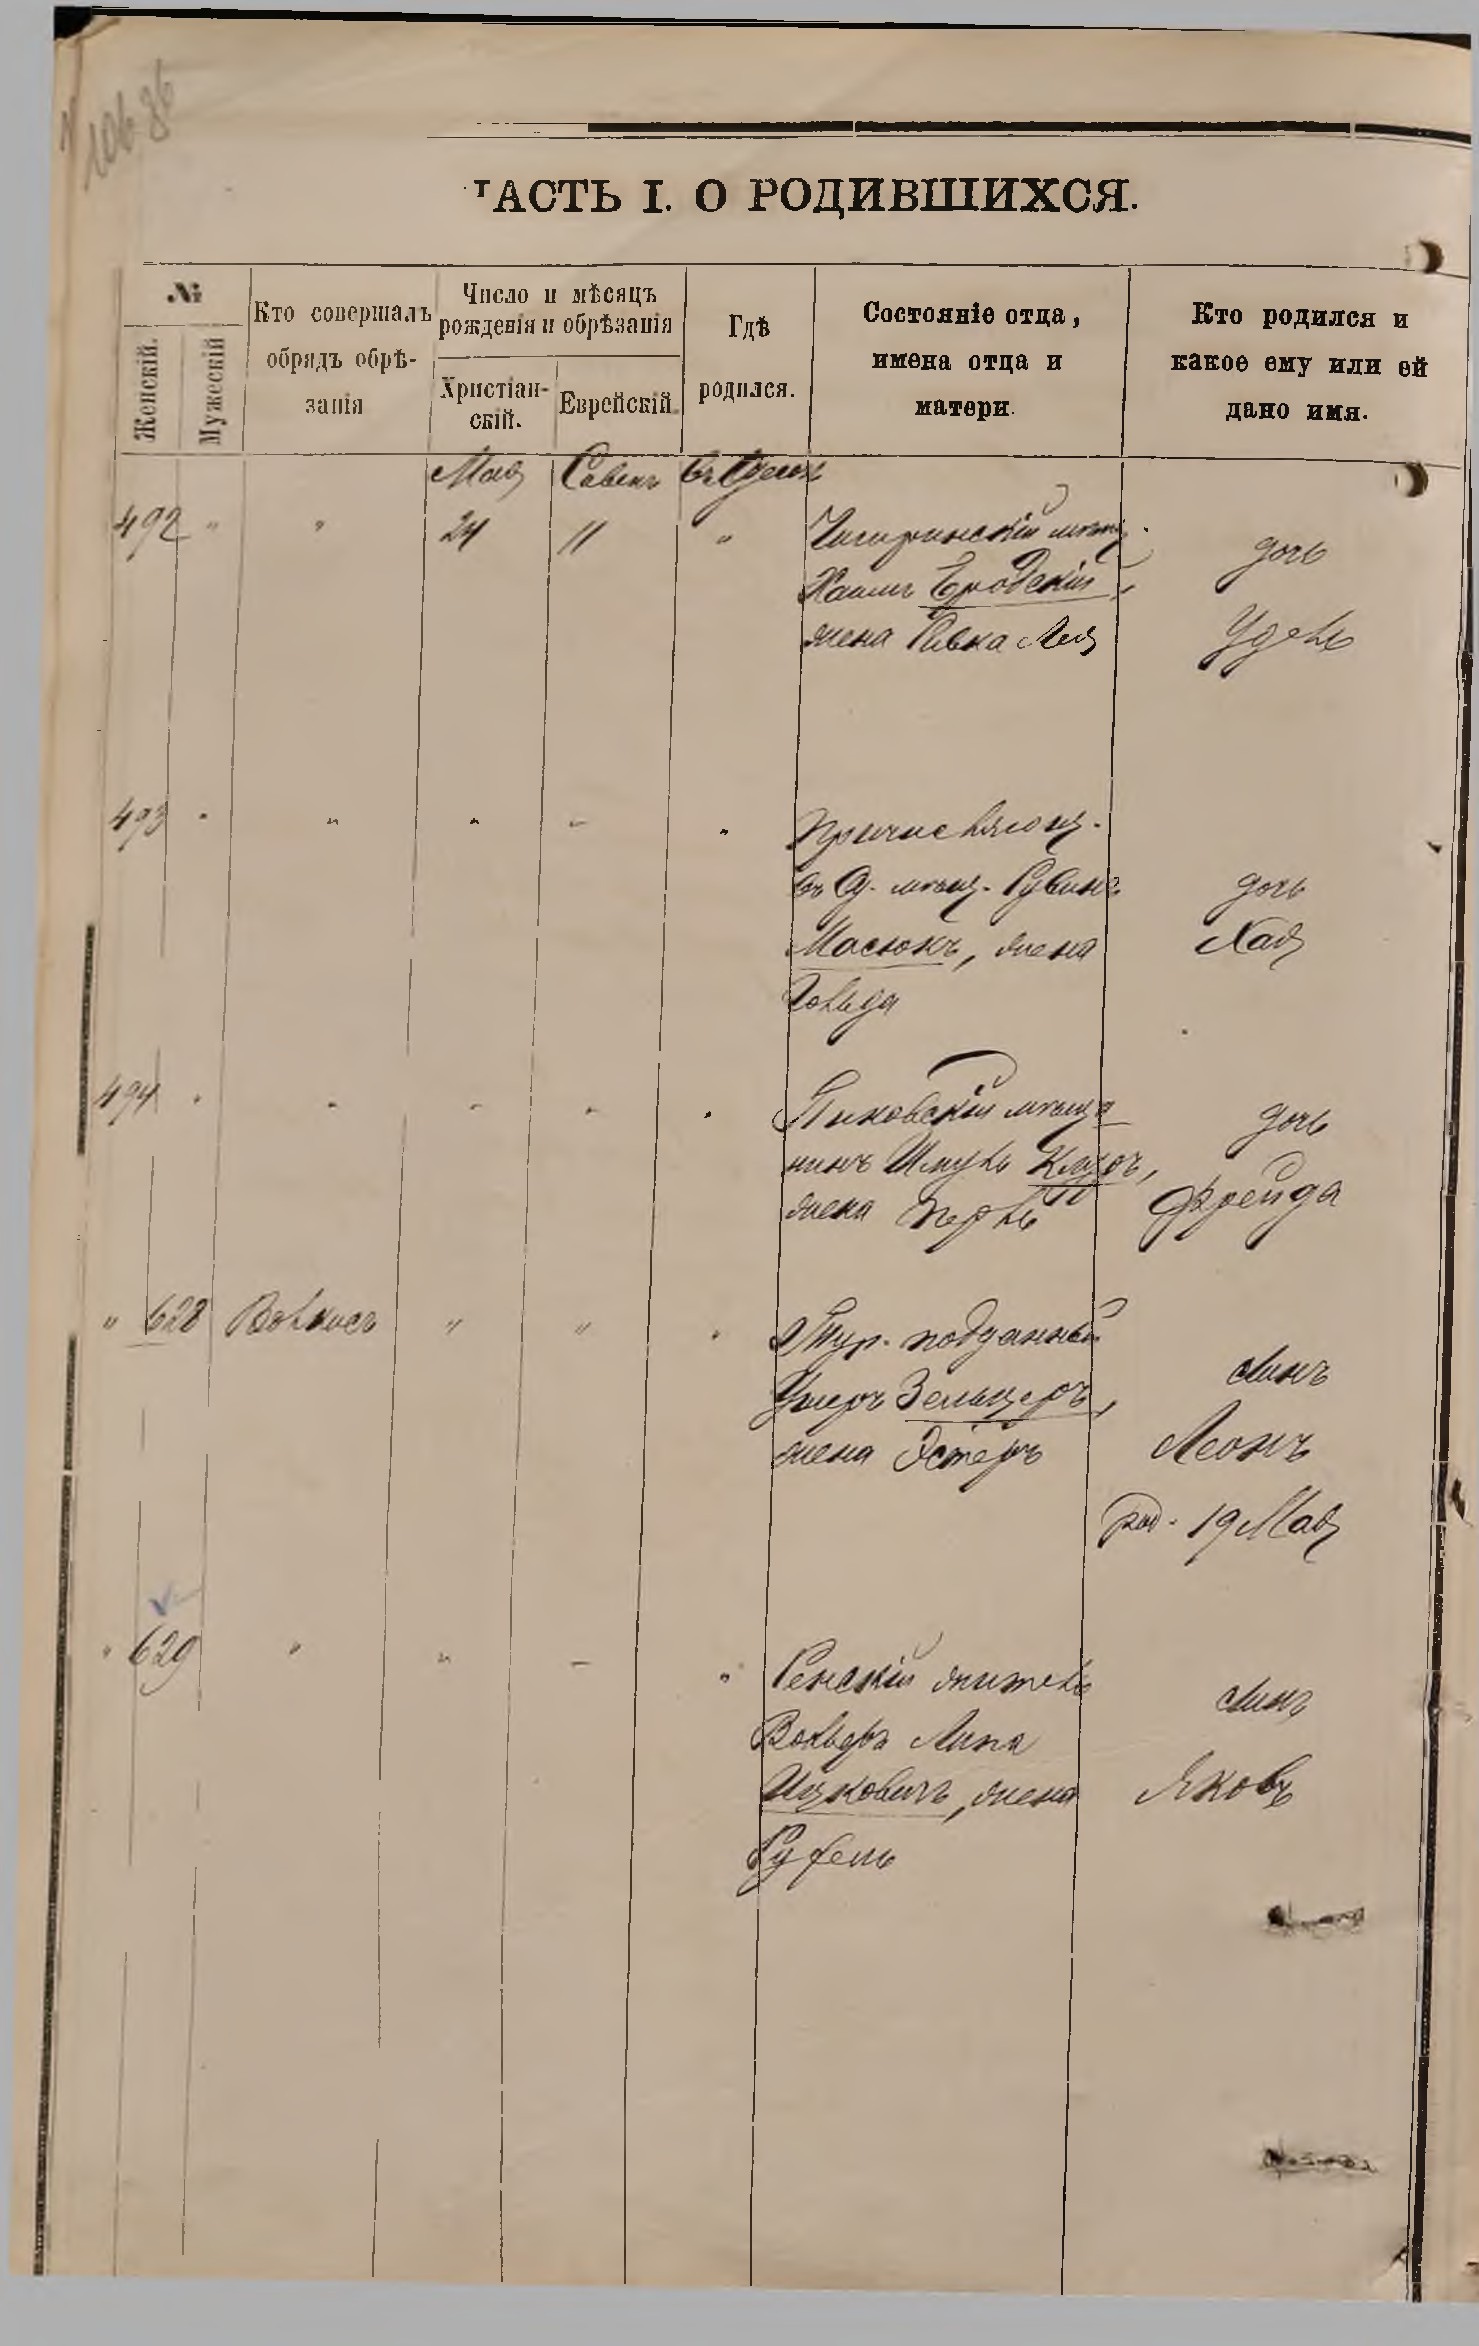 10686
ЧАСТЬ I. О РОДИВШИХСЯ.
№
Женскій.
Мужескій
Кто совершалъ
обрядъ обрѣ-
занія
Число и мѣсяцъ
рожденія и обрѣзанія
Христіан-
скій.
Еврейскій.
Гдѣ
родился.
Состояніе отца,
имена отца и
матери.
Кто родился и
какое ему или ей
дано имя.
Мая Сивенъ въ Одессѣ
492 " " 24 11 " Чигиринскій мѣщ.
Хаимъ Бродскій,
жена Ривка Лея
дочь
Удель
493 " " " " " Причисляющ.
въ Од. мѣщ. Рувинъ
Масюкъ, жена
Гольда
дочь
Хая
494 " " " " " Пиковскій мѣща
нинъ Шмуль
жена Перль
дочь
Фрейда
" 628 Волкисъ " " " Тур. подданный
Ушеръ Зельцеръ,
жена Эстеръ
сынъ
Леонъ
род. 19 Мая
" 629 " " " " Ренскій житель
Вольфъ Липа
Ицковичъ, жена
Рухель
сынъ
Яковъ